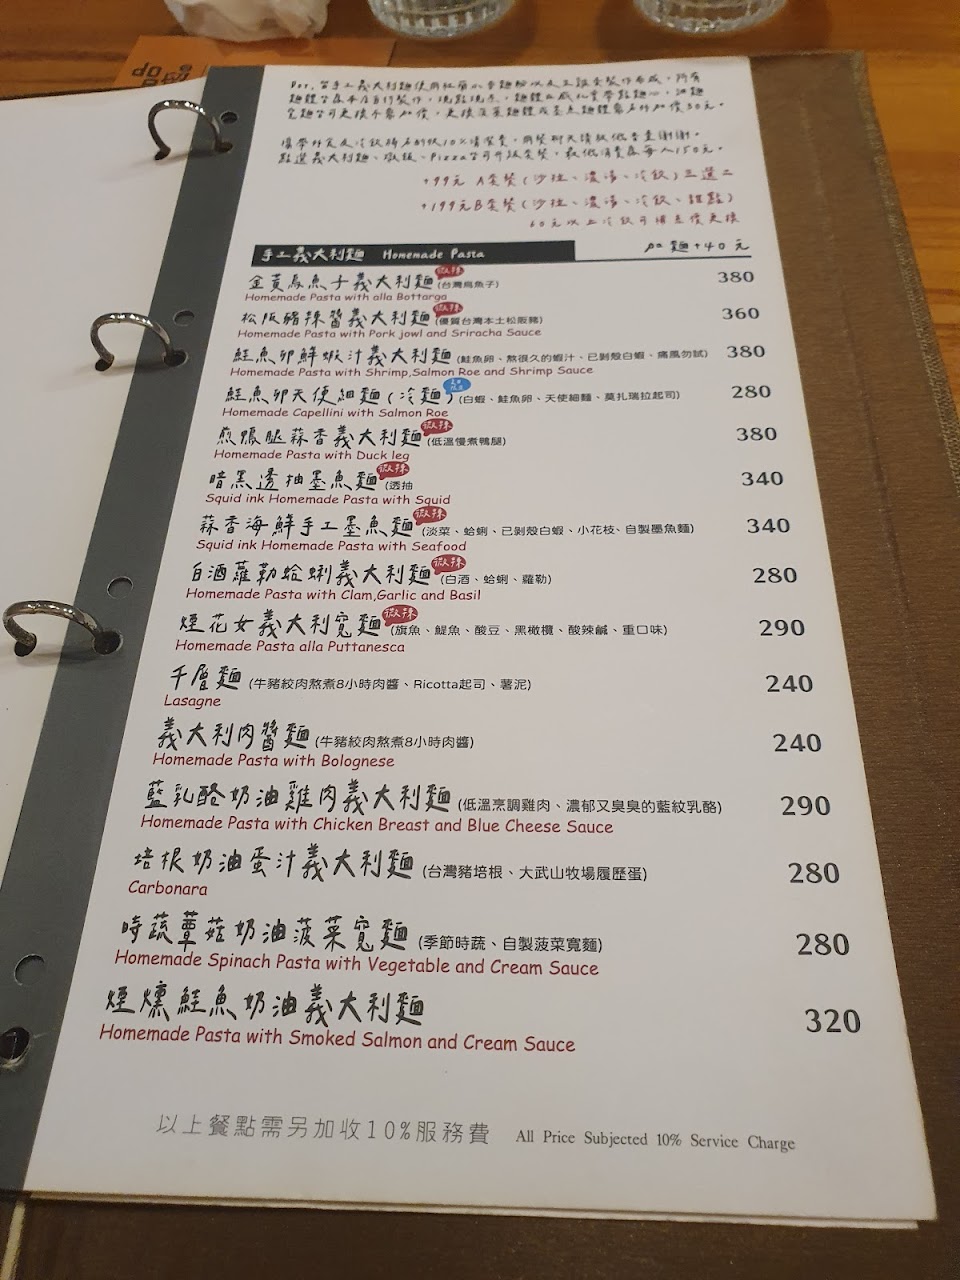 手工義大利麵 Homemade Pasta
加麵+40元
+99元 A套餐(沙拉、濃湯、冷飲)三選二
+199元B套餐(沙拉、濃湯、冷飲、甜點)
60元以上冷飲可補差價更換
金黃烏魚子義大利麵 微辣 (台灣烏魚子) 380
Homemade Pasta with alla Bottarga
松阪豬辣醬義大利麵 微辣 (優質台灣本土松阪豬) 360
Homemade Pasta with Pork jowl and Sriracha Sauce
鮭魚卵鮮蝦汁義大利麵 (鮭魚卵、熬很久的蝦汁、已剝殼白蝦、痛風勿試) 380
Homemade Pasta with Shrimp,Salmon Roe and Shrimp Sauce
鮭魚卵天使細麵(冷麵) (白蝦、鮭魚卵、天使細麵、莫扎瑞拉起司) 280
Homemade Capellini with Salmon Roe
煎鴨腿蒜香義大利麵 微辣 (低溫慢煮鴨腿) 380
Homemade Pasta with Duck leg
暗黑透抽墨魚麵 微辣 (透抽 340
Squid ink Homemade Pasta with Squid
蒜香海鮮手工墨魚麵 微辣 (淡菜、蛤蜊、已剝殼白蝦、小花枝、自製墨魚麵) 340
Squid ink Homemade Pasta with Seafood
白酒蘿勒蛤蜊義大利麵 微辣 (白酒、蛤蜊、蘿勒) 280
Homemade Pasta with Clam,Garlic and Basil
煙花女義大利寬麵 微辣 (旗魚、鯷魚、酸豆、黑橄欖、酸辣鹹、重口味) 290
Homemade Pasta alla Puttanesca
千層麵 (牛豬絞肉熬煮8小時肉醬、Ricotta起司、薯泥) 240
Lasagne
義大利肉醬麵 (牛豬絞肉熬煮8小時肉醬) 240
Homemade Pasta with Bolognese
藍乳酪奶油雞肉義大利麵 (低溫烹調雞肉、濃郁又臭臭的藍紋乳酪) 290
Homemade Pasta with Chicken Breast and Blue Cheese Sauce
培根奶油蛋汁義大利麵 (台灣豬培根、大武山牧場履歷蛋) 280
Carbonara
時蔬蕈菇奶油菠菜寬麵 (季節時蔬、自製菠菜寬麵) 280
Homemade Spinach Pasta with Vegetable and Cream Sauce
煙燻鮭魚奶油義大利麵 320
Homemade Pasta with Smoked Salmon and Cream Sauce
以上餐點需另加收10%服務費 All Price Subjected 10% Service Charge